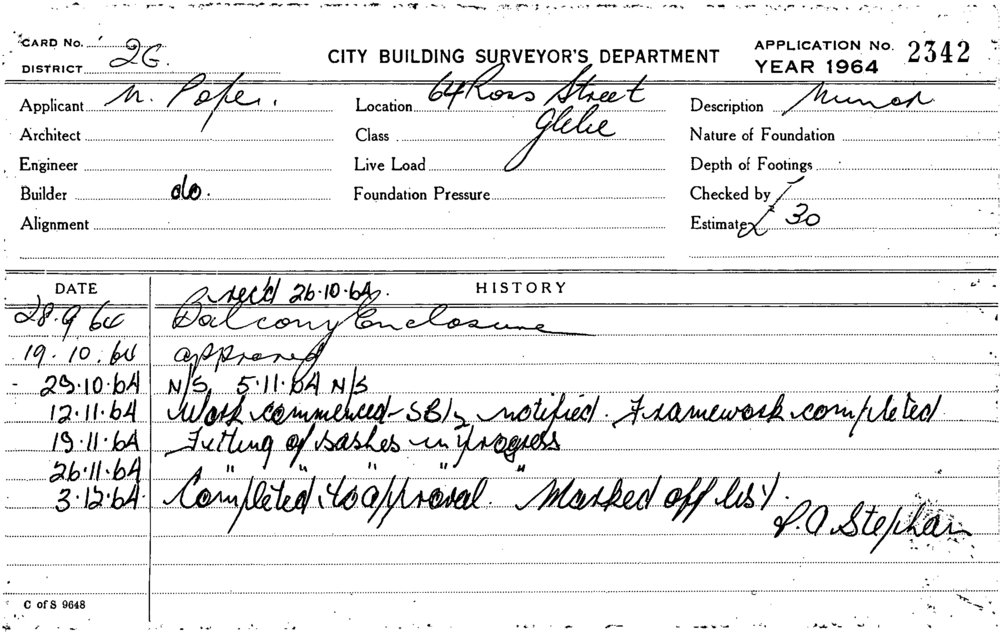 CARD No. 2G. CITY BUILDING SURVEYOR'S DEPARTMENT APPLICATION No. 2342
DISTRICT YEAR 1964
Applicant N. Location 64 Ross Street Description Minor
Architect Class Glebe Nature of Foundation
Engineer Live Load Depth of Footings
Builder do. Foundation Pressure Checked by
Alignment Estimate £30
DATE HISTORY
rec'd 26.10.64.
28.9 64 Balcony Enclosure
19.10.64 approved
29.10.64 N/S, 5.11.64 N/S
12.11.64 Work commenced - notified. Framework completed
19.11.64 Fitting of sashes in progress
26.11.64 " " " " "
3.12.64. Completed to approval. Marked off list.
P. A. Stephan
C of S 9648